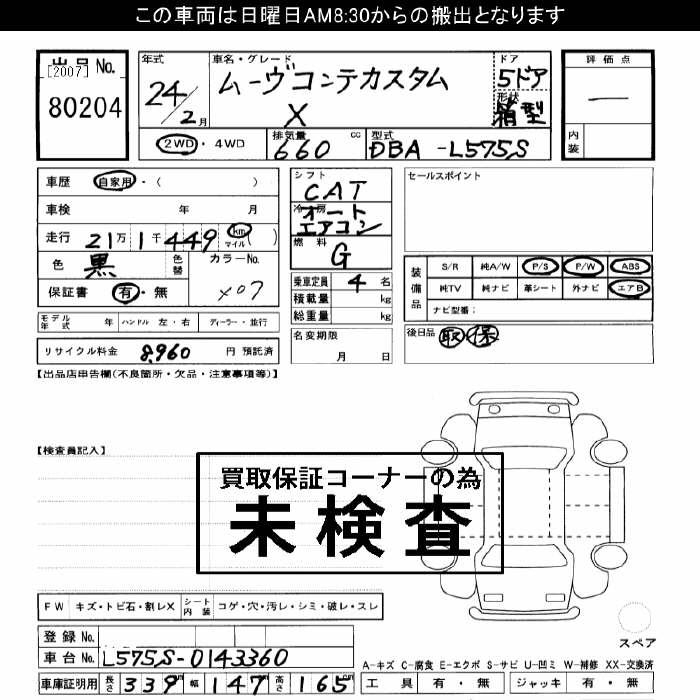 この車両は日曜日AM8:30からの搬出となります
出品No.
[2007]
80204
年式
24/2月
車名・グレード
ムーヴコンテカスタム
X
ドア
5ドア
形状
箱型
評価点
―
内装
2WD・4WD
排気量
660 cc
型式
DBA-L575S
車歴 自家用・( )
車検 年 月
走行 21万1千449 km マイル ( )
色 黒 色替 カラーNo. X07
保証書 有・無
シフト
CAT
冷房
オートエアコン
燃料
G
乗車定員 4名
積載量 kg
総重量 kg
名変期限
月 日
セールスポイント
装備品
S/R 純A/W P/S P/W ABS
純TV 純ナビ 革シート 外ナビ エアB
ナビ型番:
後日品 取 保
モデル年式 年 ハンドル 左・右 ディーラー・並行
リサイクル料金 8,960 円 預託済
【出品店申告欄(不良箇所・欠品・注意事項等)】
【検査員記入】
買取保証コーナーの為
未検査
FW キズ・トビ石・割レX シート内装 コゲ・穴・汚レ・シミ・破レ・スレ
スペア
登録No.
車台No. L575S-0143360
A-キズ C-腐食 E-エクボ S-サビ U-凹ミ W-補修 XX-交換済
車庫証明用 長さ 339cm 幅 147cm 高さ 165cm
工具 有・無 ジャッキ 有・無